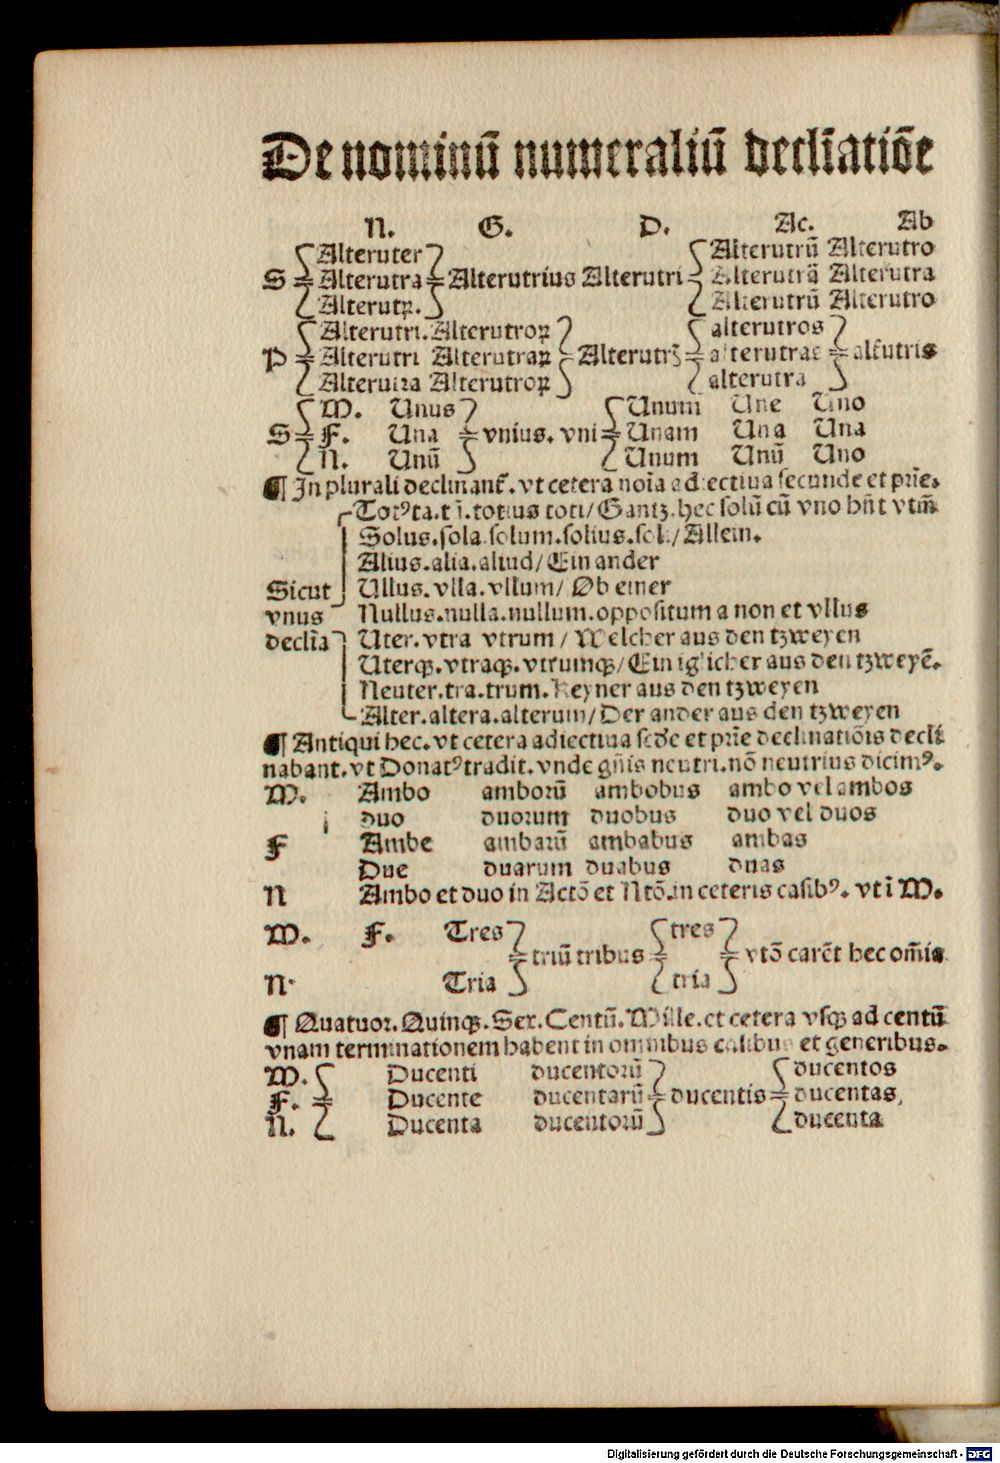 De nominū numeraliū decl̄iatiōe
N. G. D. Ac. Ab
Alteruter Alterutrū Alterutro
S Alterutra Alterutrius Alterutri Alterutrā Alterutra
Alterutꝝ. Alterutrū Alterutro
Alterutri. Alterutroꝝ alterutros
P Alterutri Alterutraꝝ alterutras alt̄utris
Alterutra Alterutroꝝ alterutra
M. Unus Unum Une Uno
S F. Una vnius. vni Unam Una Una
N. Unū Unum Unū Uno
¶ In plurali declinant᷑. vt cetera noīa adiectiua secunde et prīe.
Totꝰ ta. tū. totius toti/ Gantz. hec solū cū vno hn̄t vtm̄
Solus. sola solum. solius. sol./ Allein.
Alius. alia. aliud/ Ein ander
Sicut Ullus. vlla. vllum/ Ob einer
vnus Nullus. nulla. nullum. oppositum a non et vllus
declīa Uter. vtra vtrum/ Welcher aus den tzweyen
Uterqꝫ. vtraqꝫ. vtrumqꝫ/ Ein iglicher aus den tzweyē.
Neuter. tra. trum. Keyner aus den tzweyen
Alter. altera. alterum/ Der ander aus den tzweyen
¶ Antiqui hec. vt cetera adiectiua sc̄de et prīe declinatiōis decli
nabant. vt Donatꝰ tradit. vnde gn̄is neutri. nō neutrius dicimꝰ.
M. Ambo amborū ambobus ambo vel ambos
duo duorum duobus duo vel duos
F Ambe ambarū ambabus ambas
Due duarum duabus duas
N Ambo et duo in Actō et Ntō. in ceteris casibꝰ. vti M.
M. F. Tres tres
triū tribus vtō carēt hec om̄ia
N. Tria tria
¶ Quatuor. Quinqꝫ. Sex. Centū. Mille. et cetera vsqꝫ ad centū
vnam terminationem habent in omnibus casibus et generibus.
M. Ducenti ducentorū ducentos
F. Ducente ducentarū ducentis ducentas,
N. Ducenta ducentorū ducenta
Digitalisierung gefördert durch die Deutsche Forschungsgemeinschaft - DFG